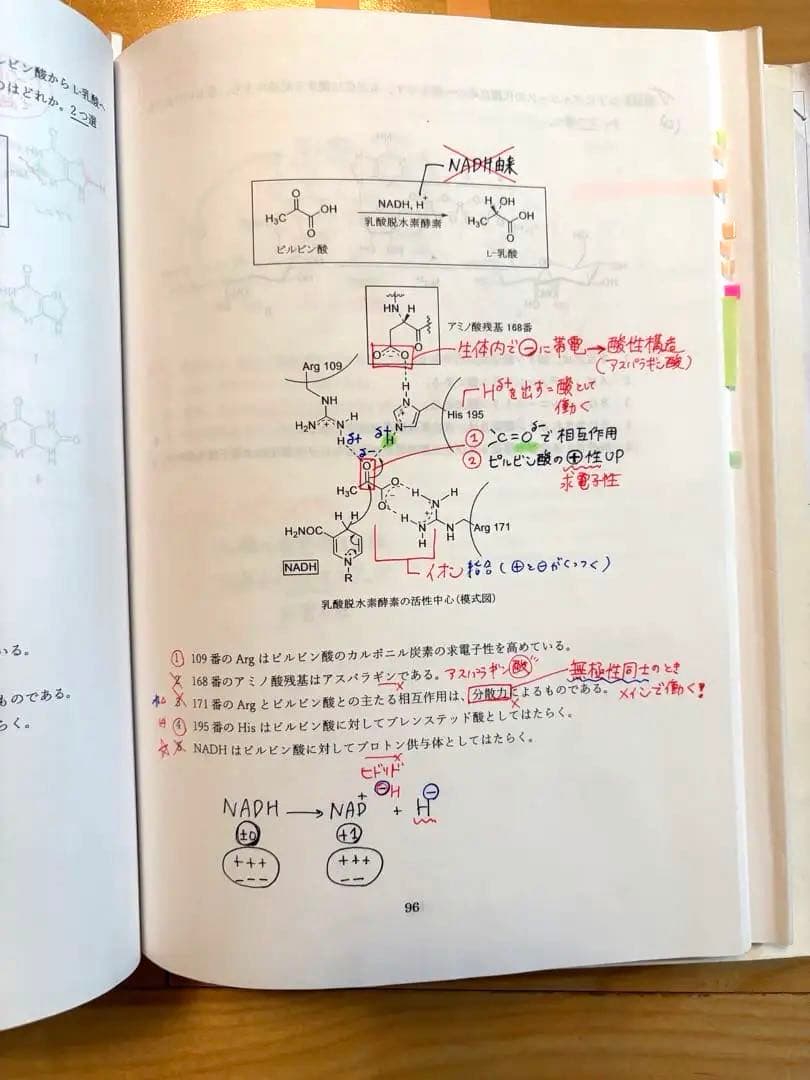 ルビン酸から L-乳酸へ
のはどれか。2つ選
NADH由来
NADH, H⁺
乳酸脱水素酵素
H₃C
O
OH
O
ピルビン酸
H OH
H₃C
OH
O
L-乳酸
HN
H
O
アミノ酸残基 168番
生体内で⊖に帯電→酸性構造
(アスパラギン酸)
Arg 109
NH
H₂N
N-H
H
His 195
Hδ+を出す=酸として
働く
δ+
δ+
δ-
① C=Oδ-で相互作用
② ピルビン酸の⊕性UP
求電子性
H₃C
O
H H
H₂NOC
N
R
NADH
Arg 171
イオン結合(⊕と⊖がくっつく)
乳酸脱水素酵素の活性中心(模式図)
① 109番のArgはピルビン酸のカルボニル炭素の求電子性を高めている。
2 168番のアミノ酸残基はアスパラギンである。アスパラギン酸
無極性同士のとき
3 171番のArgとピルビン酸との主たる相互作用は、分散力によるものである。
メインで働く!
④ 195番のHisはピルビン酸に対してブレンステッド酸としてはたらく。
5 NADHはピルビン酸に対してプロトン供与体としてはたらく。
ヒドリド
⊖H
NADH → NAD⁺ + H⊖
±0
+1
+++
---
+++
--
いる。
ものである。
らく。
96